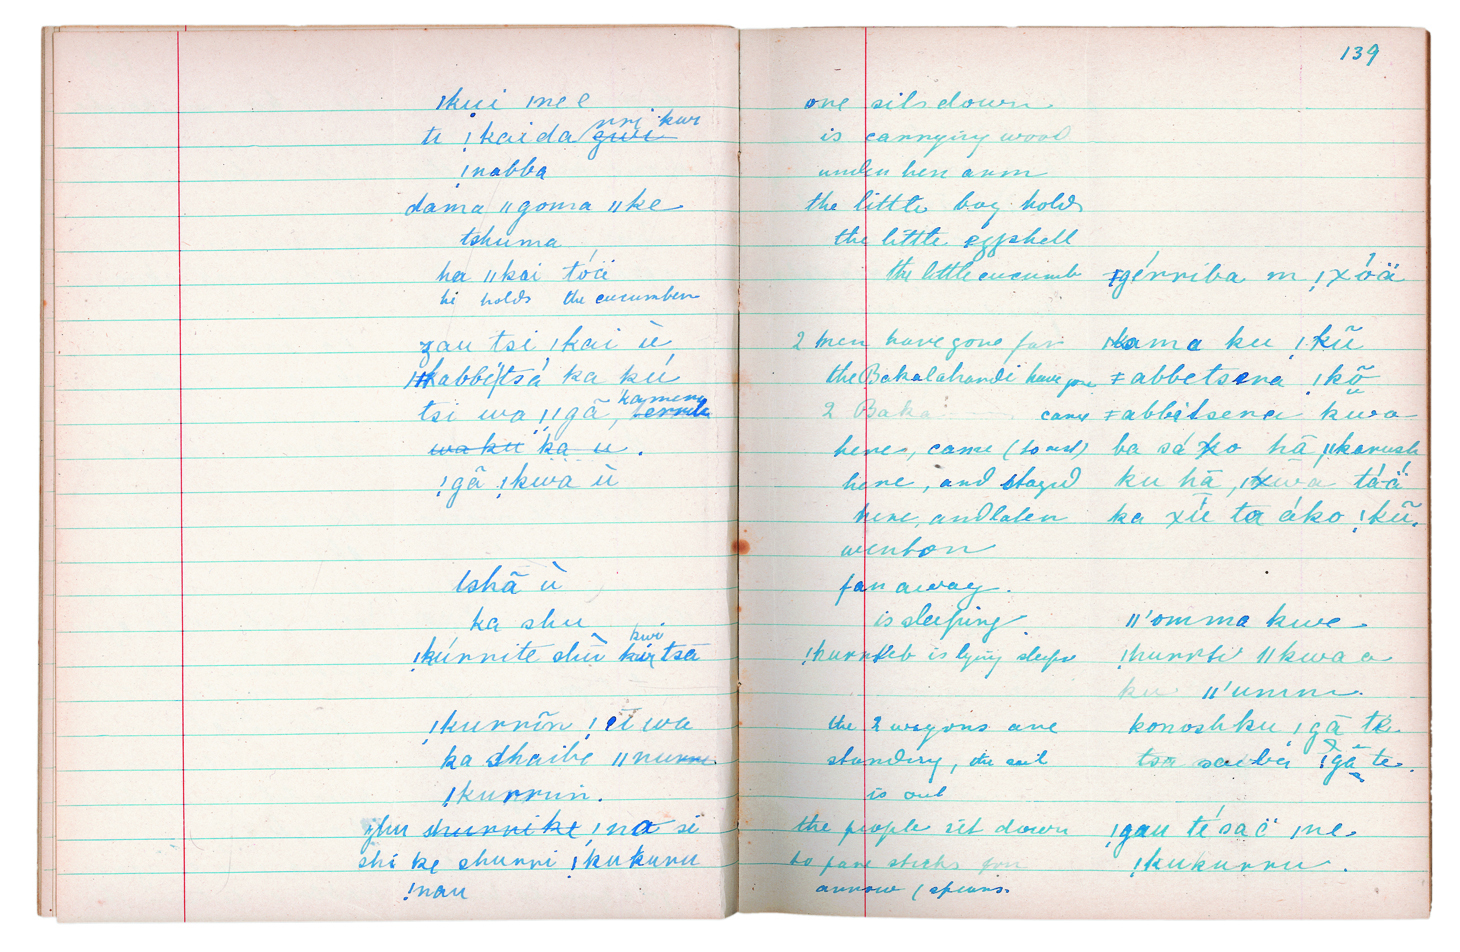 139
ǀkui ǀne e
ti ǃkaida nri kwi
ǃnabba
dama ǁgoma ǁke
tshuma
ha ǁkai tóä
he holds the cucumber
zau tsi ǀkai ù
ka kú
tsi wa ǁgã, kamena
wa ku ka u.
ǃgã ǃkwa ù
ishã ù
ka shu
ǃkúrrite shū kwi tsã
ǃkurrīn ǃ wa
ka shaibe ǁnurru
ǃkurrun.
zhu shurrike ǃna si
shi ke shurri ǃkukuru
ǃnau
one sits down
is carrying wood
under her arm
the little boy holds
the little eggshell
the little cucumb ǂgérriba m ǃxóä
2 men have gone far ǀkama ku ǃkũ
the Bakalahardi have gone ǂabbetsera ǃkõ
2 Baka came ǂabbitsera kũwa
here, came (to rest) ba sá xo hã ǁkarush
here, and stayed ku hã, ǀxuwa táä
here, and later ka xũ ta áko ǃkũ.
went on
far away.
is sleeping ǁ'omma kwe
ǃhurrteb is lying sleep ǃhurrbi ǁkwa a
ku ǁ'umm.
the 2 wagons are konoshku ǀgā te
standing, the sail tsa saiba ǃgã te.
is out
the people sit down ǃgau tésaë ǀne
to pare sticks for ǃkukurru.
arrow (spears.